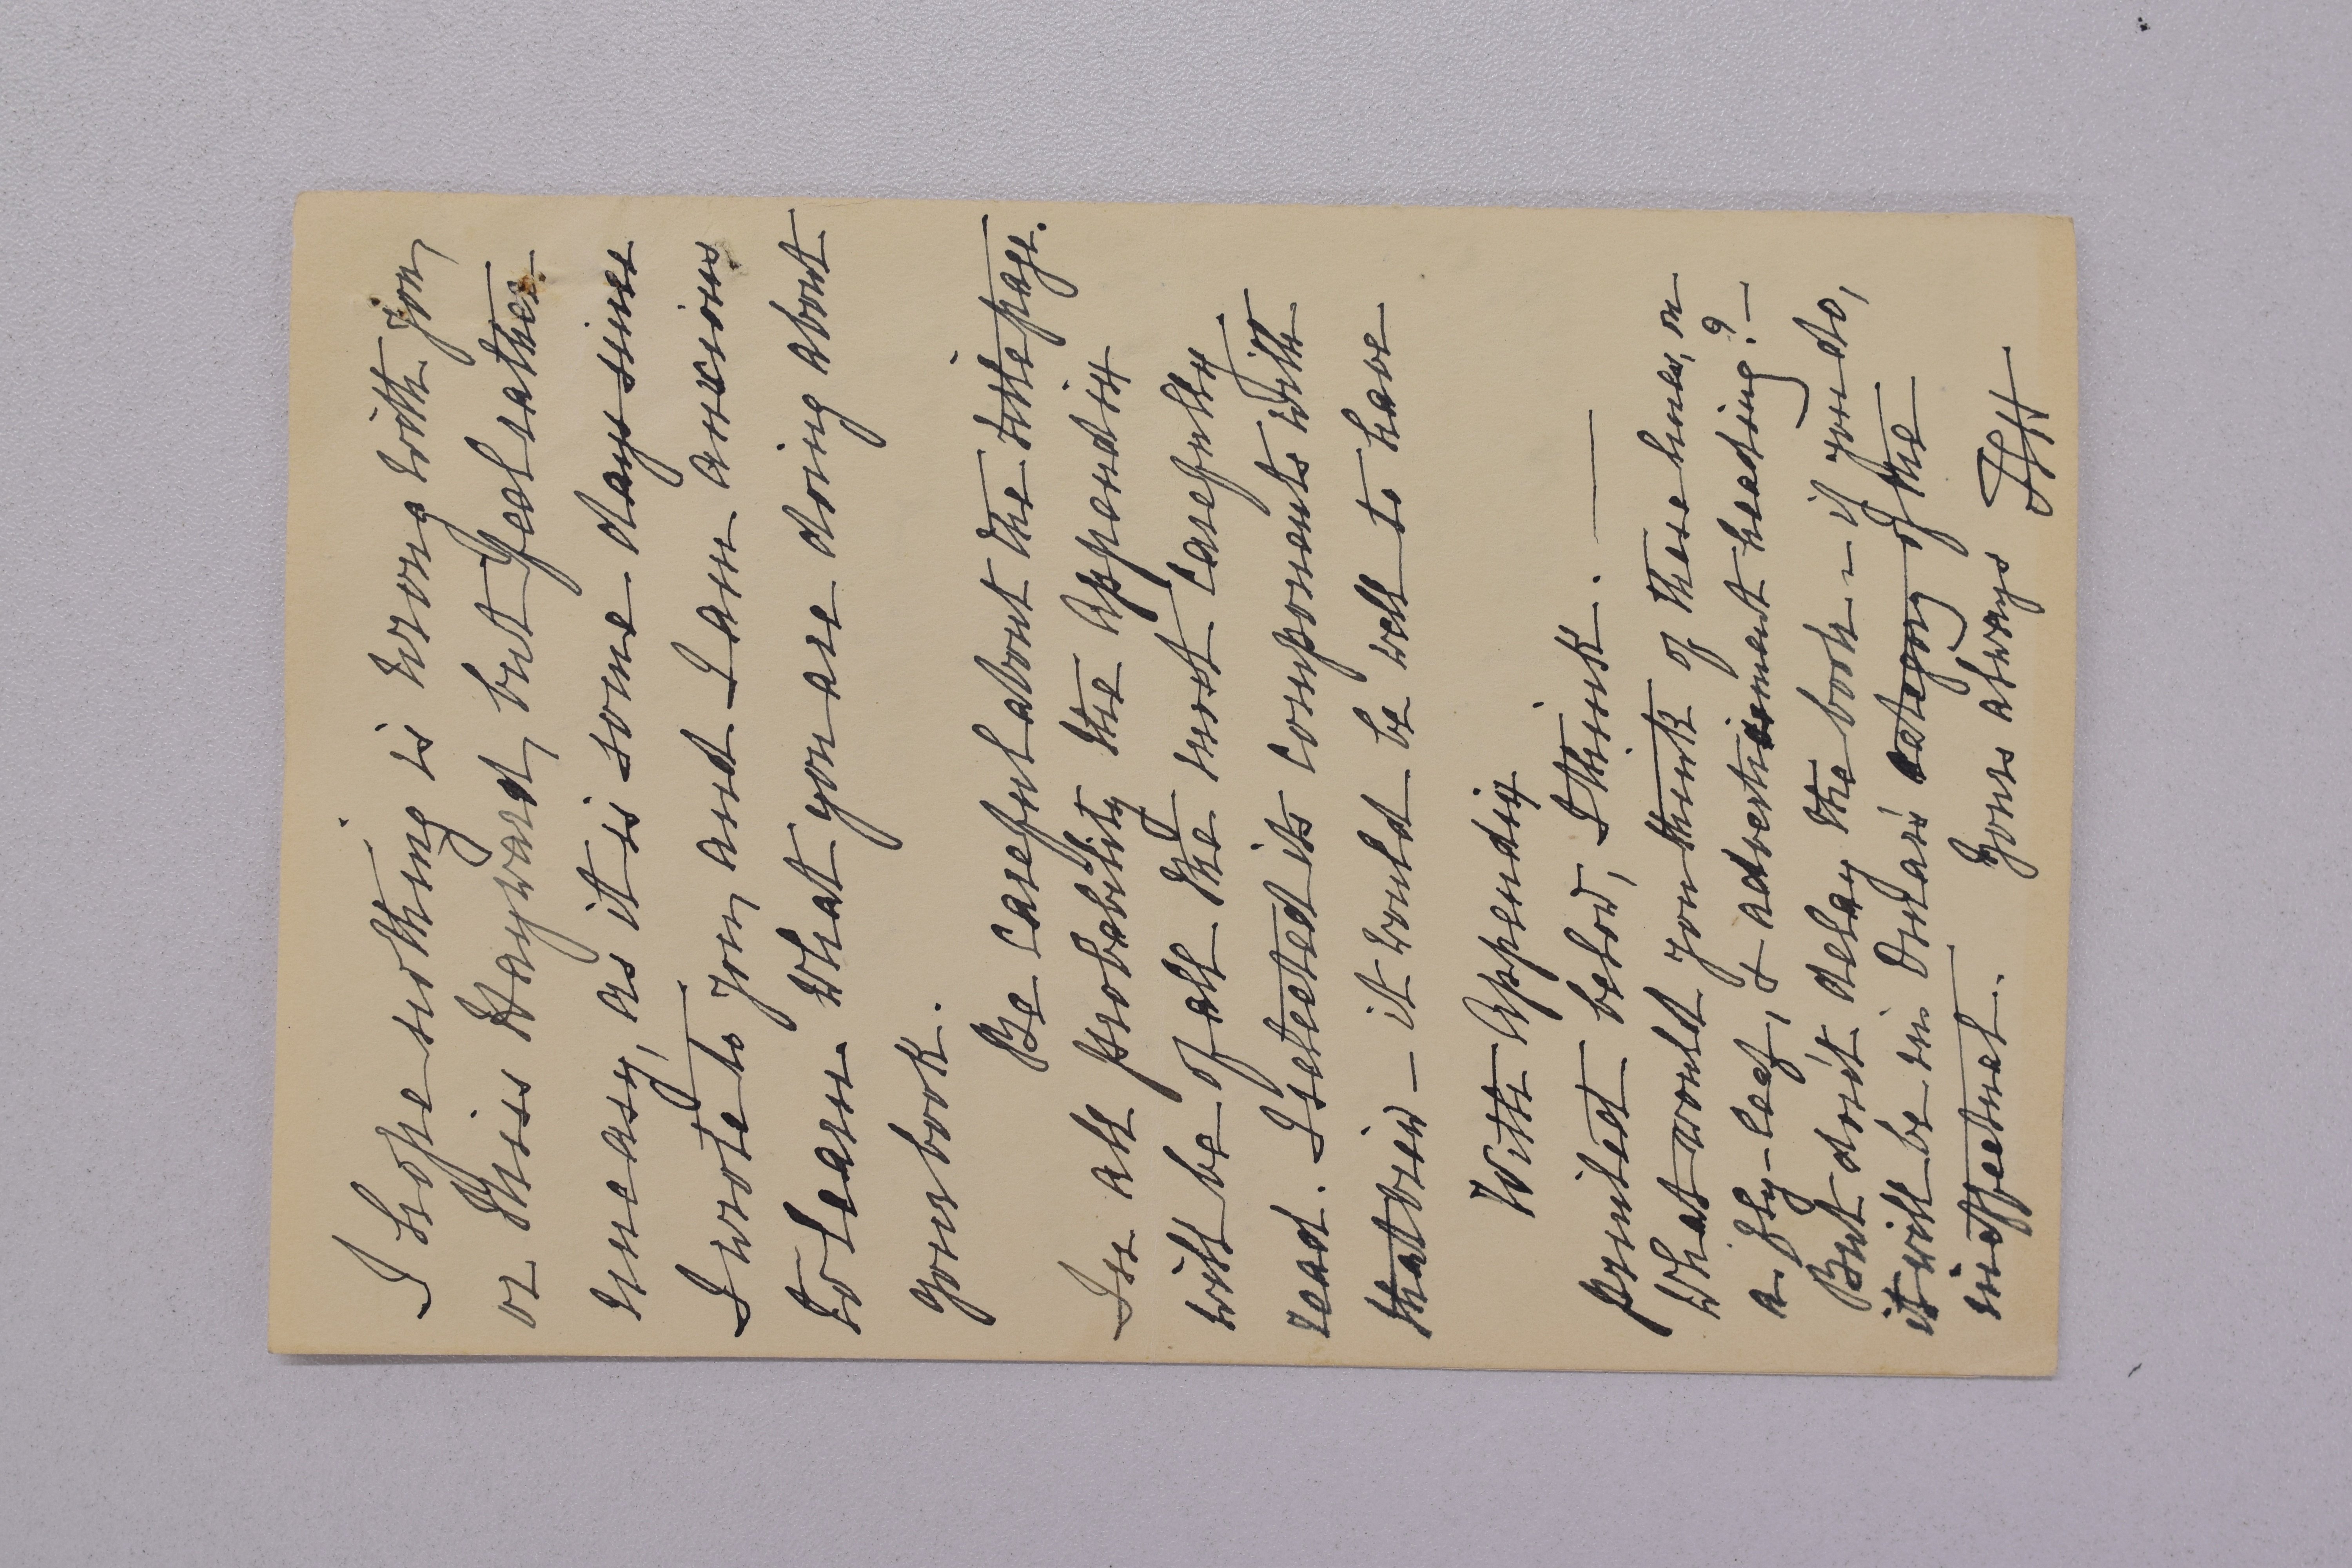 I hope nothing is wrong with you,
or Miss Hayward, but feel rather
uneasy, as it is some days since
I wrote to you, and I am anxious
to learn what you are doing about
your book.
Be careful about the title page.
In all probability the Appendix
will be of all the most carefully
read. I selected its components with
that view – it would be well to have
With Appendix
printed below, I think. —
What would you think of these lines, on
a fly-leaf, & advertisement heading? –
But don't delay the book – if you do,
it will be in Dolan's category of the
ineffectual.
Yours always